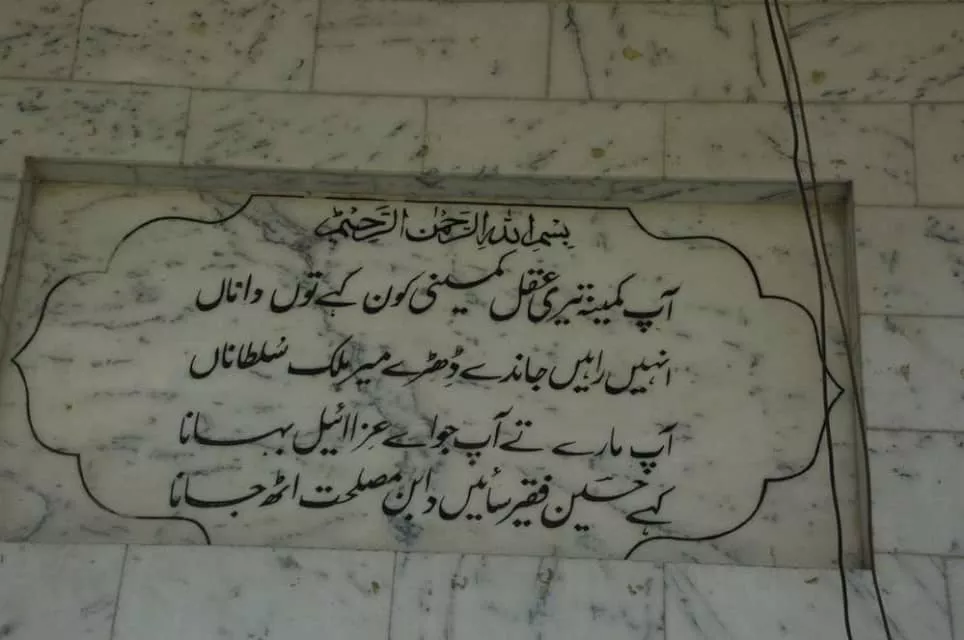 بِسْمِ اللهِ الرَّحْمٰنِ الرَّحِيْمِ
آپ کمینہ تیری عقل کمینی کون کہے توں داناں
انہیں راہیں جاندے ڈِھڑے میر ملک سُلطاناں
آپ مارے تے آپ جواے عزاائیل بہانا
کہے حسین فقیر سائیں دا بن مصلحت اٹھ جانا